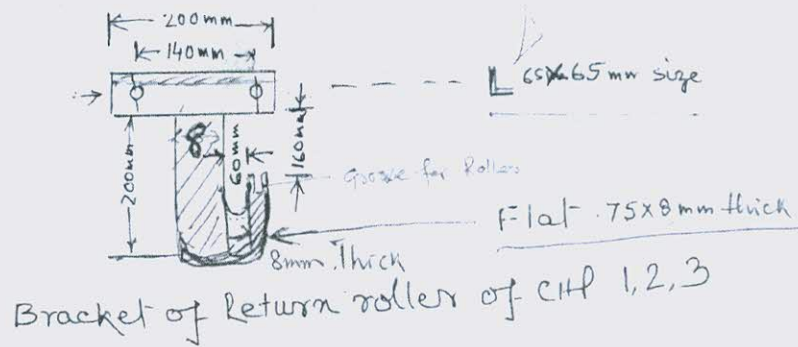 200mm
140mm
L 65x65 mm size
8
60mm
160mm
200mm
Groove for Rollers
Flat 75x8mm thick
8mm Thick
Bracket of Return roller of CHP 1,2,3